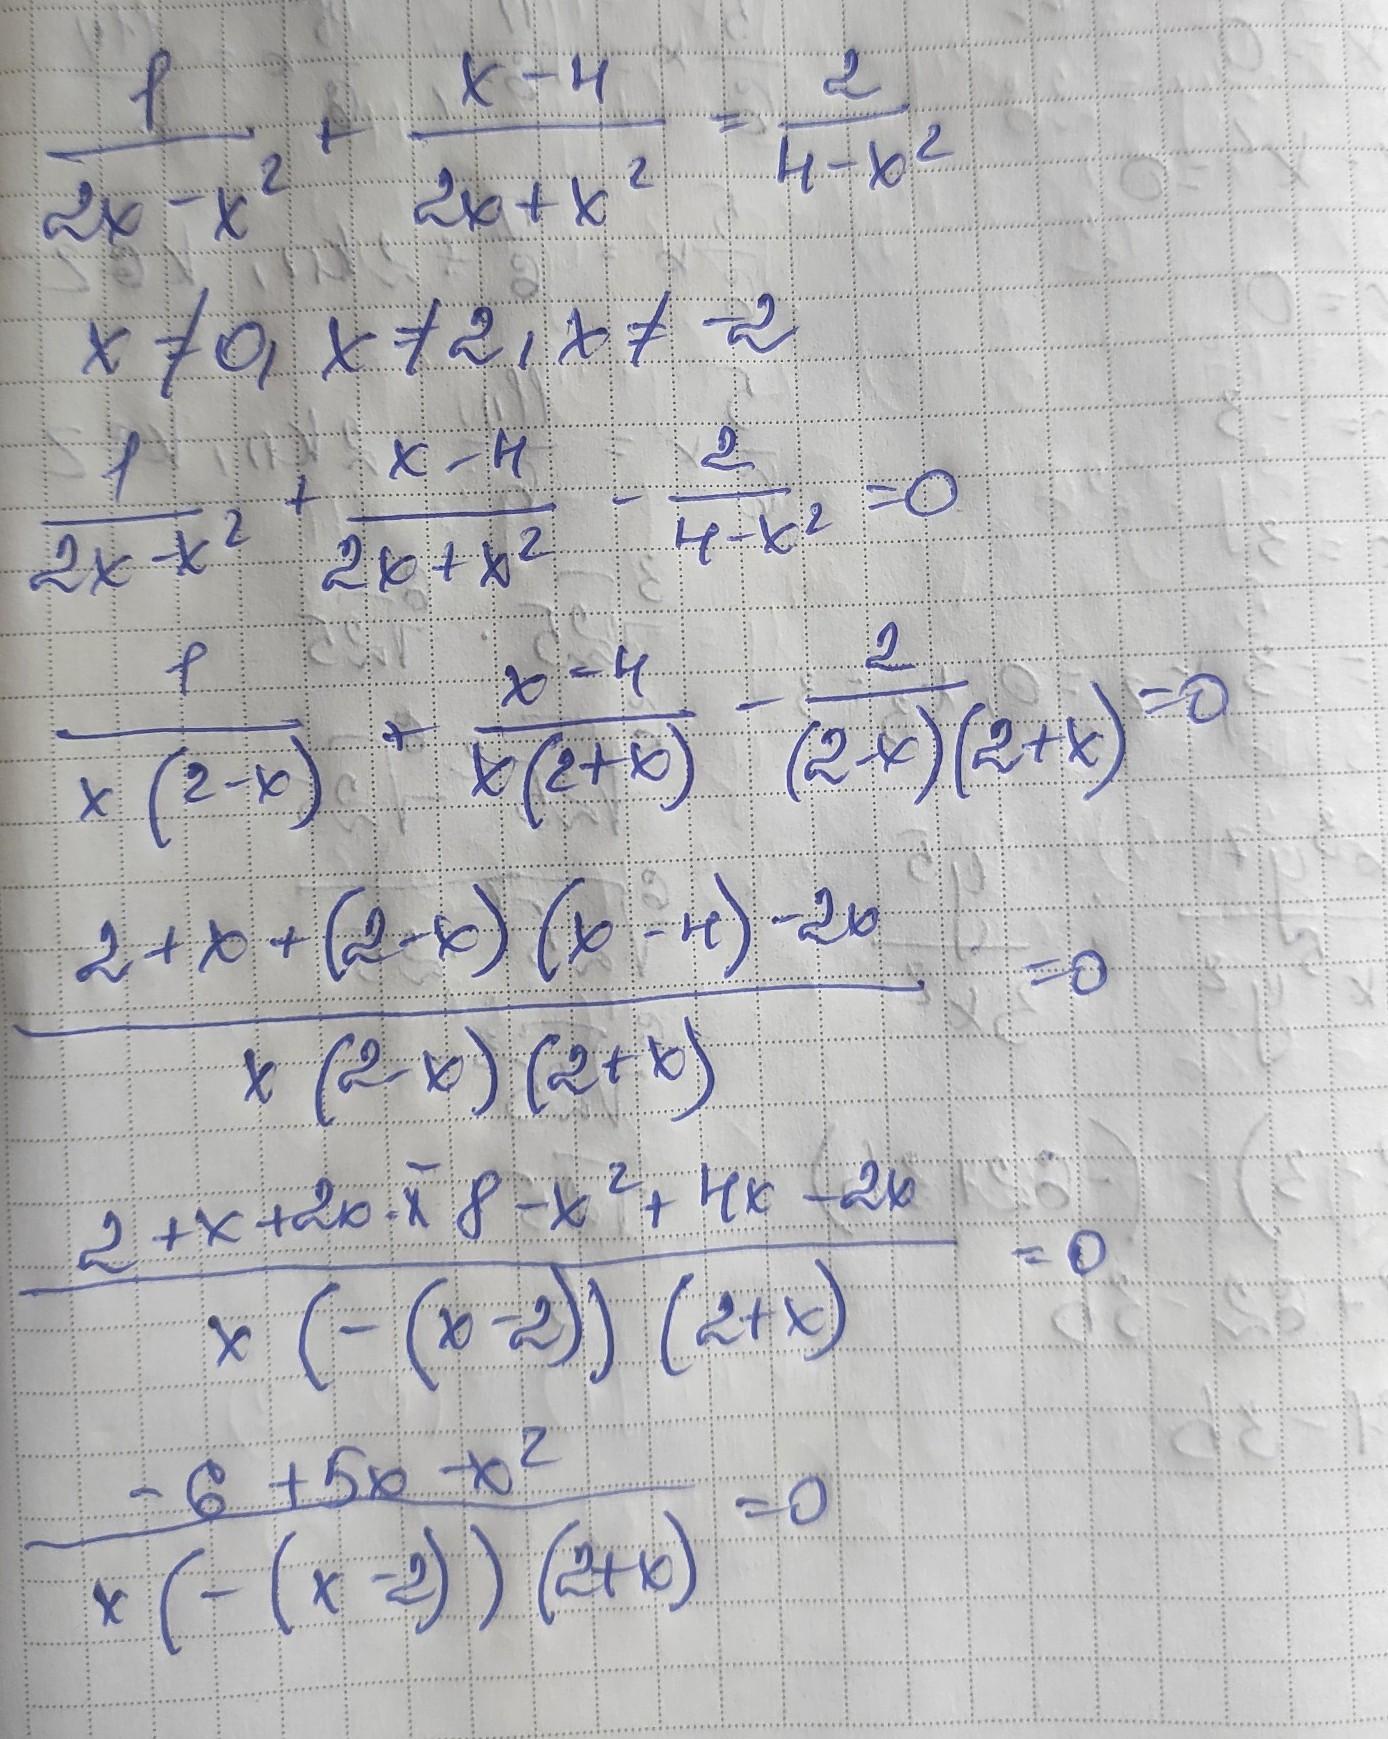 1/(2x - x²) + (x - 4)/(2x + x²) = 2/(4 - x²)
x ≠ 0, x ≠ 2, x ≠ -2
1/(2x - x²) + (x - 4)/(2x + x²) - 2/(4 - x²) = 0
1/(x(2 - x)) + (x - 4)/(x(2 + x)) - 2/((2 - x)(2 + x)) = 0
(2 + x + (2 - x)(x - 4) - 2x)/(x(2 - x)(2 + x)) = 0
(2 + x + 2x - 8 - x² + 4x - 2x)/(x(-(x - 2))(2 + x)) = 0
(-6 + 5x - x²)/(x(-(x - 2))(2 + x)) = 0